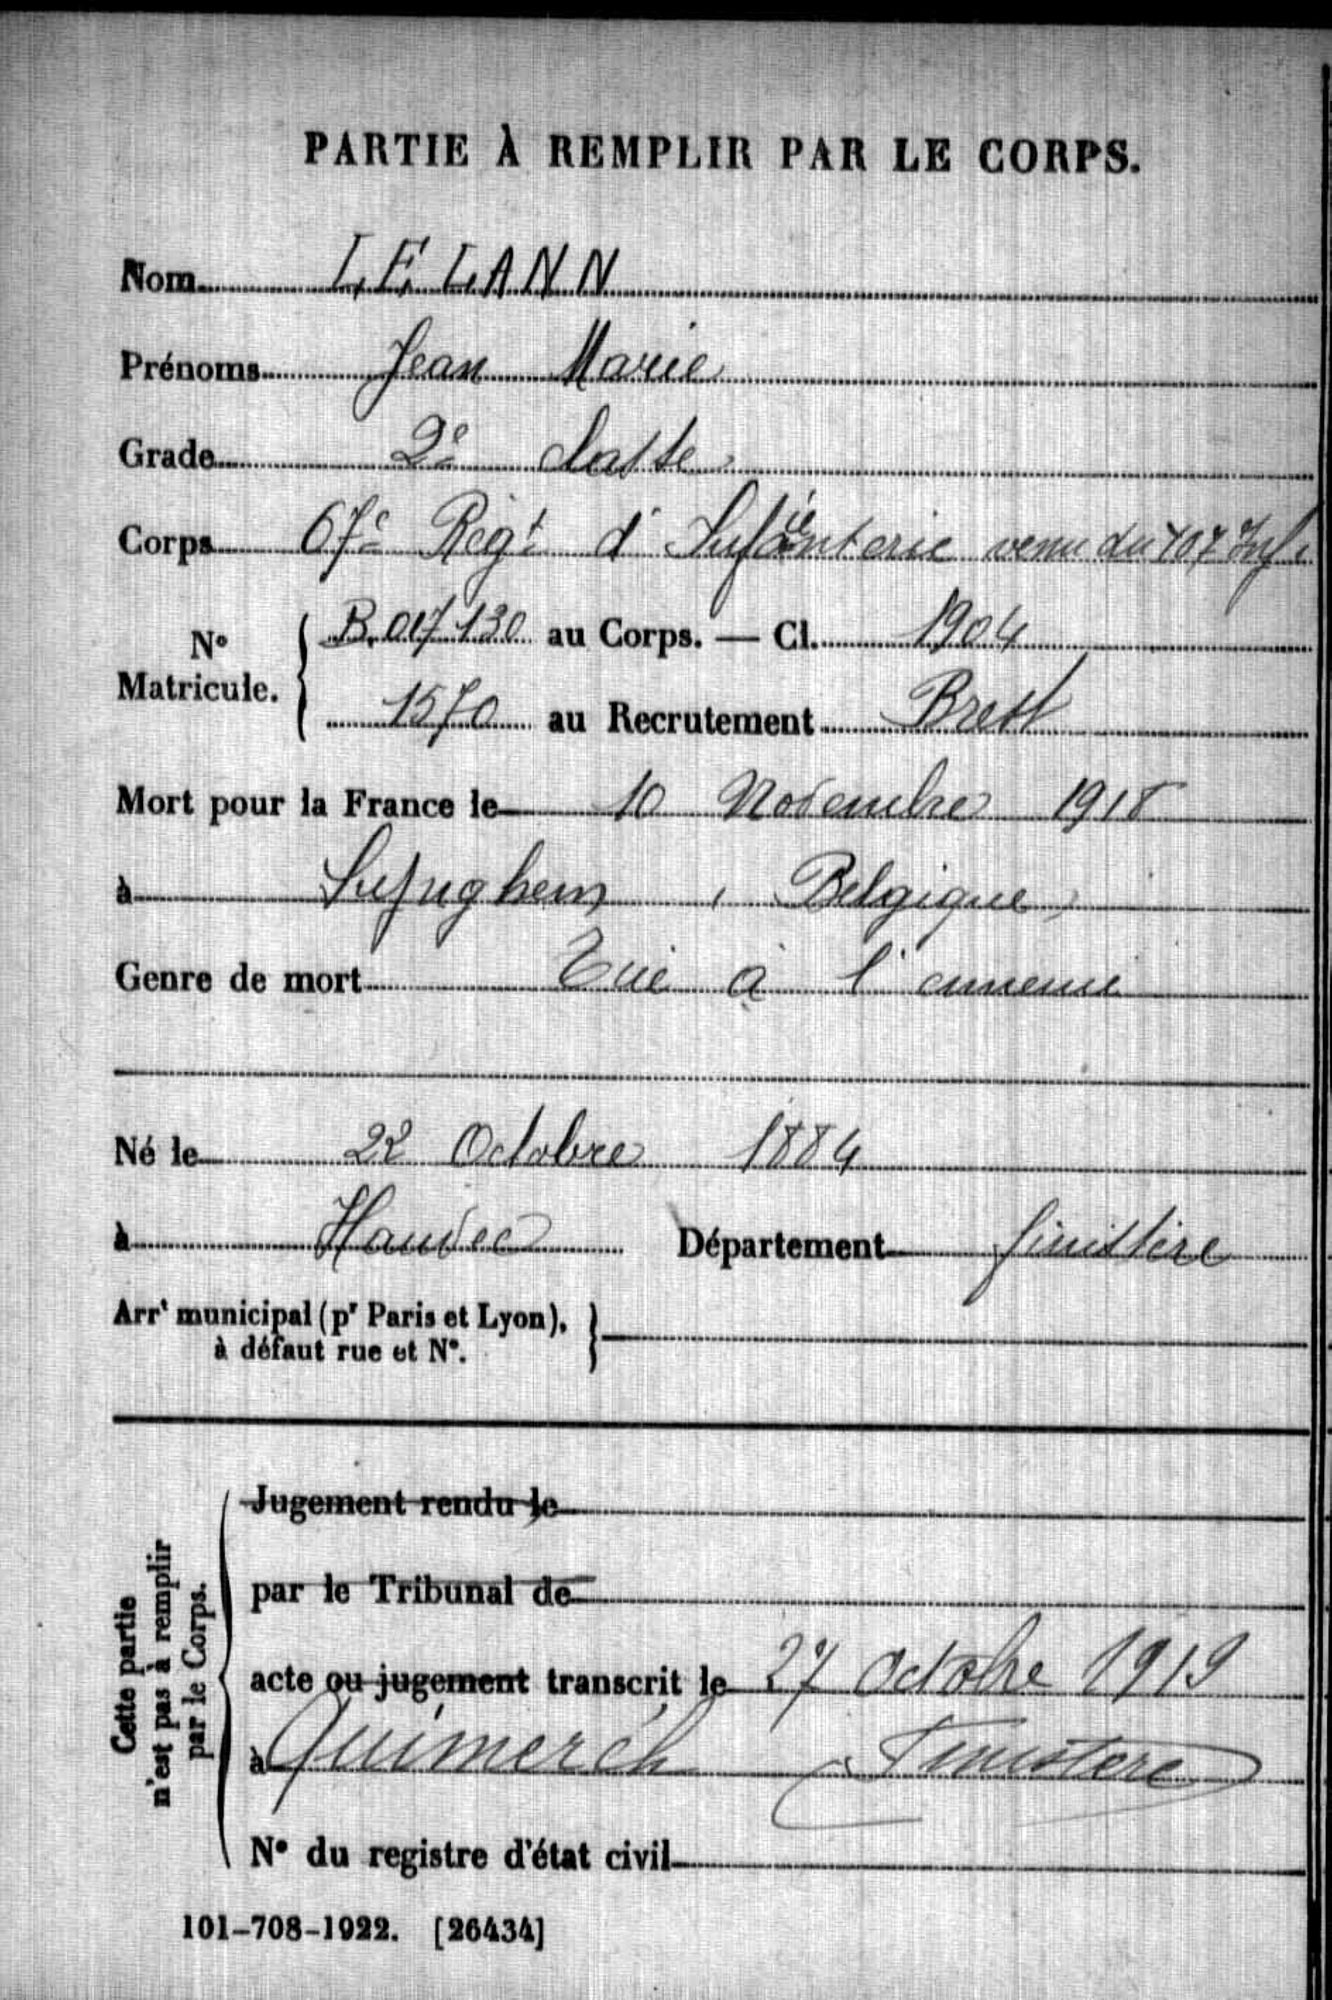 PARTIE À REMPLIR PAR LE CORPS.
Nom LE LANN
Prénoms Jean Marie
Grade 2e classe
Corps 67e Régt d'Infanterie venu du 107 Inf.
N° Matricule. B.017130 au Corps. — Cl. 1904
1570 au Recrutement Brest
Mort pour la France le 10 Novembre 1918
à Belgique
Genre de mort Tué à l'ennemi
Né le 22 Octobre 1884
à Hanvec Département finistère
Arrt municipal (pr Paris et Lyon), à défaut rue et N°.
Cette partie n'est pas à remplir par le Corps.
Jugement rendu le
par le Tribunal de
acte ou jugement transcrit le 27 octobre 1919
à Quimerch Finistere
N° du registre d'état civil
101-708-1922. [26434]